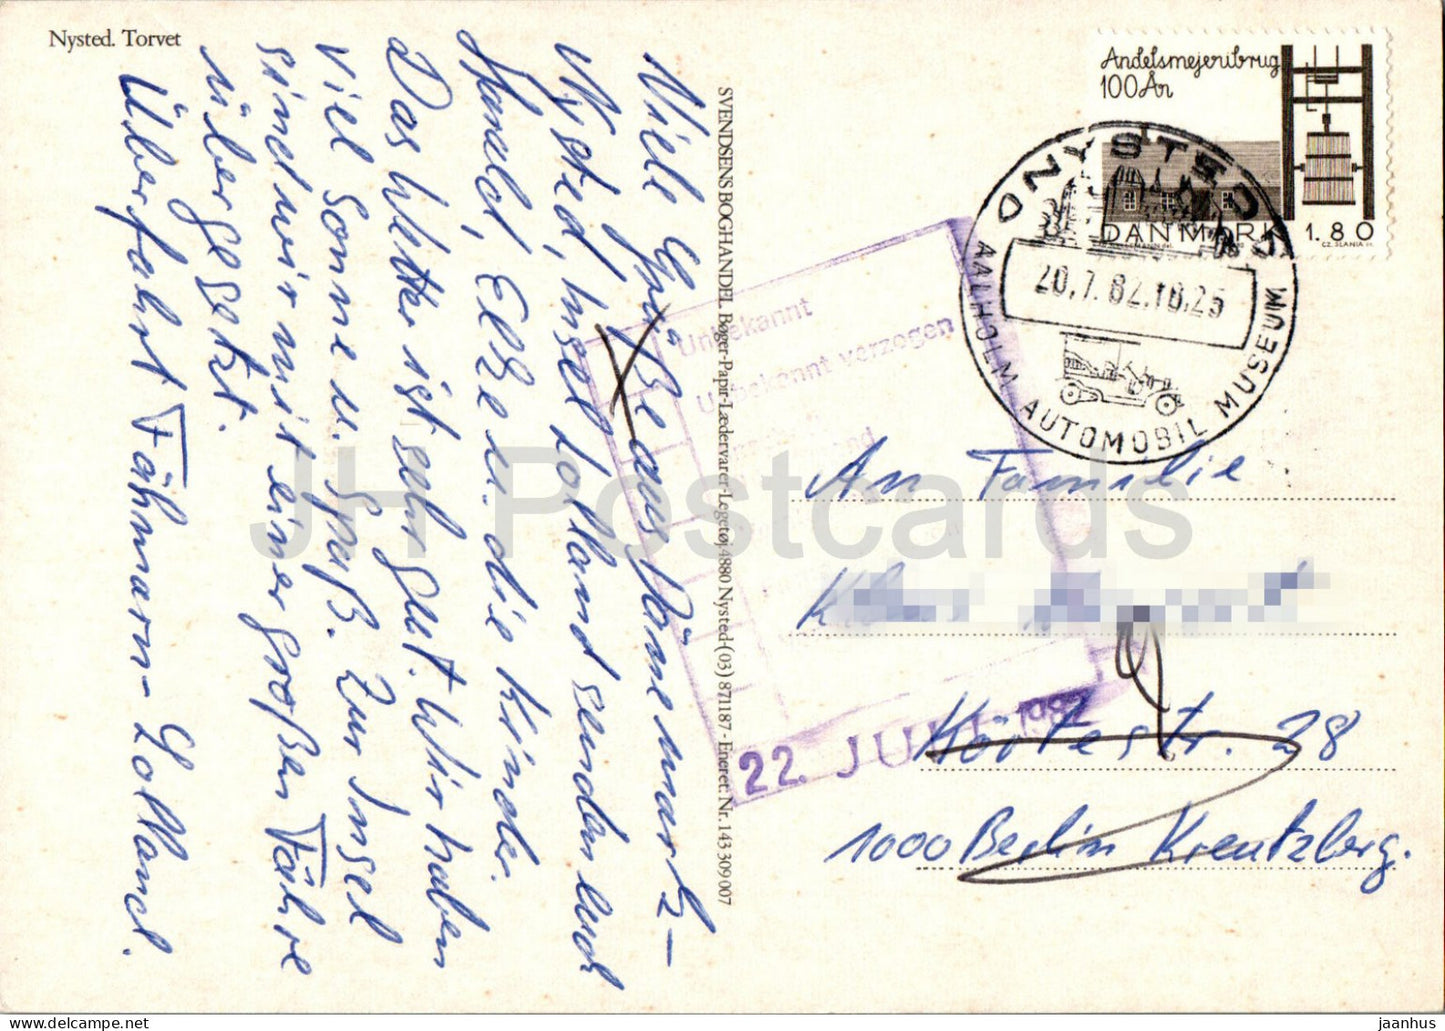 Nysted. Torvet
Viele Grüße aus Dänemark-
Nysted, Insel Lolland senden euch
Harald, Elke u. die Kinder.
Das Wetter ist sehr gut. Wir haben
viel Sonne u. Spaß. Zur Insel
sind wir mit einer großen Fähre
rübergesetzt.
Überfahrt Fähmarn-Lolland.
SVENDSENS BOGHANDEL Bøger-Papir-Lædervarer-Legetøj 4880 Nysted-(03) 871187 - Eneret. Nr. 143 309 007
Andelsmejeribrug
100 År
DANMARK 1.80
CZ. SLANIA sc.
NYSTED
20.7.82.10.25
AALHOLM AUTOMOBIL MUSEUM
Unbekannt
Unbekannt verzogen
22. JULI 1982
An Familie
Körtestr. 28
1000 Berlin Kreutzberg.
JH Postcards
jaanhus
www.delcampe.net